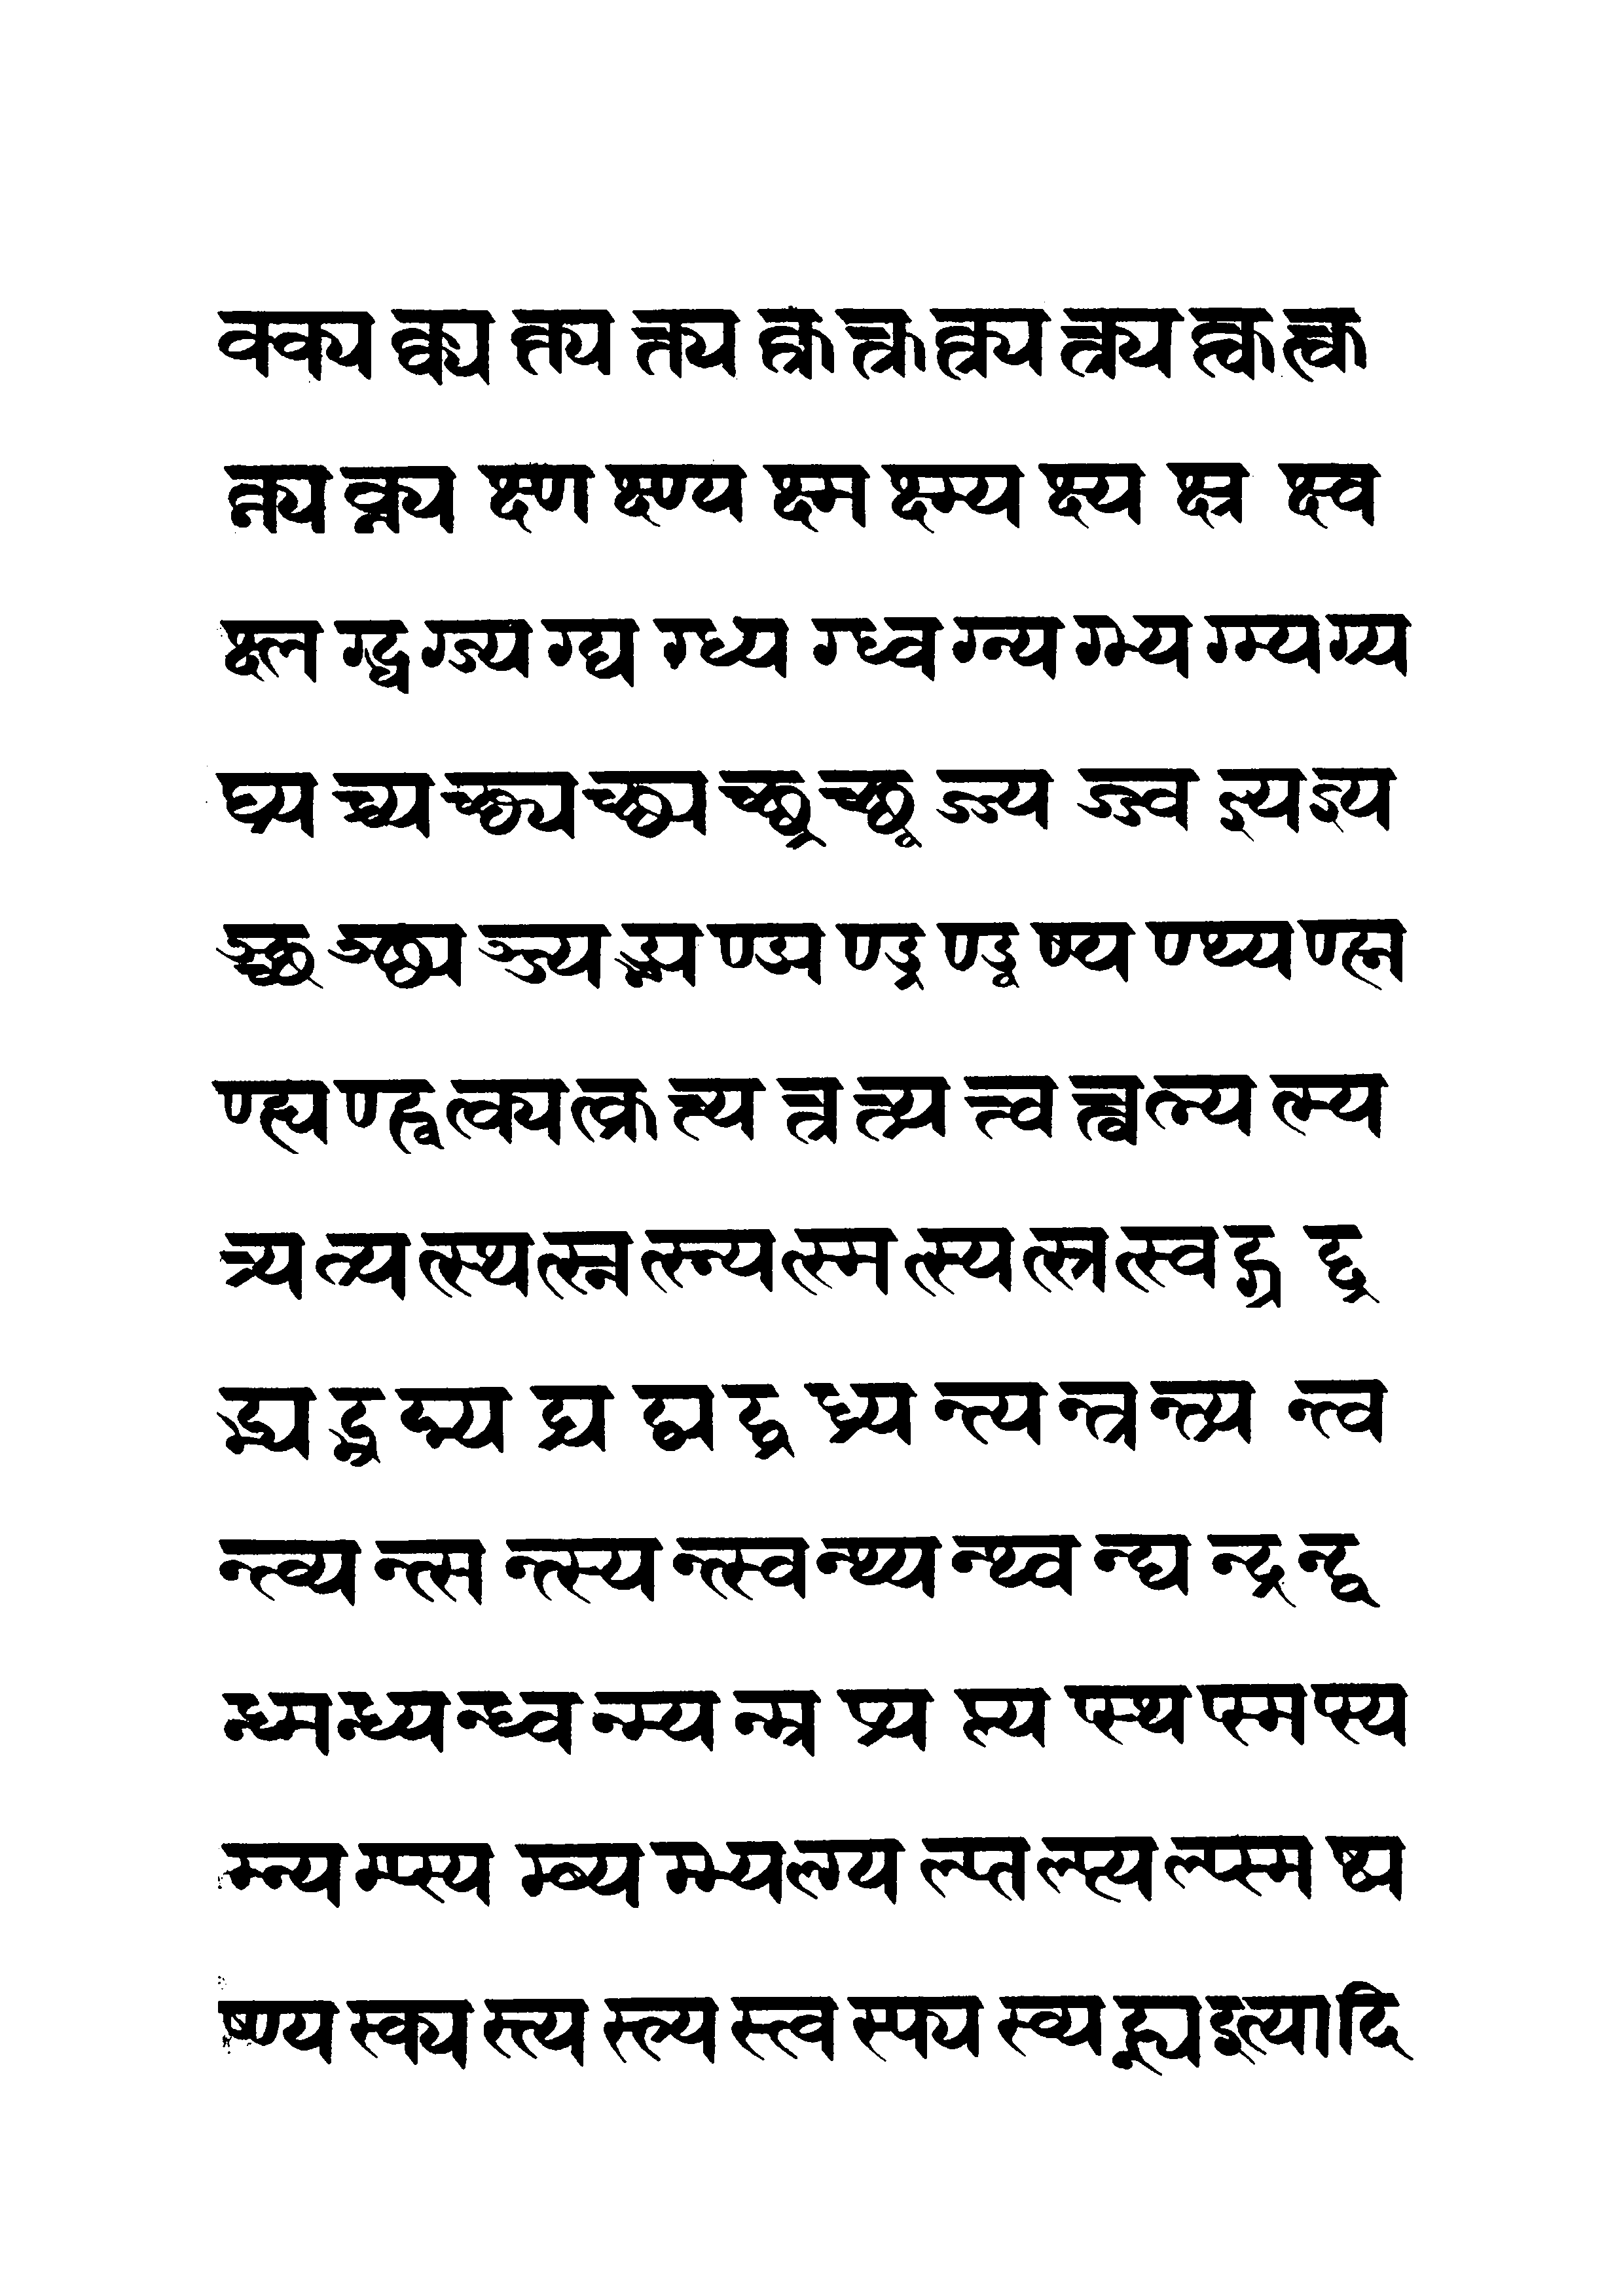 क्क्य क्क्य क्त्य क्त्य क्त्र क्त्र क्त्र्य क्त्र्य क्त्व क्त्व
क्न्य क्न्य क्ष्ण क्ष्ण्य क्ष्म क्ष्म्य क्ष्य क्ष्र क्ष्व
क्ष्ल ग्द्ध ग्ज्य ग्द्य ग्ध्य ग्ध्व ग्न्य ग्भ्य ग्म्य ग्र्य
घ्र्य च्च्य च्छ्य च्छ्य च्छ्र च्छृ ज्ज्य ज्ज्व ज्ञ्य ज्ञ्य
ञ्छ्य ञ्ज्य ण्ड्य ण्ड्र ण्डृ ष्य ण्थ्य ण्ह्न
ण्ह्य ण्ह्व त्क्य त्क्र त्त्य त्त्र त्त्र्य त्त्व त्त्व त्न्य त्म्य
त्र्य त्र्य त्स्थ त्स्न त्स्न्य त्स्म त्स्य त्स्र त्स्व द्ग्र द्द्र
द्भ्य द्भ्र द्म्य द्र्य द्व्य द्व्र ध्र्य न्त्य न्त्र न्त्र्य न्त्व
न्त्व्य न्त्स न्त्स्य न्त्स्व न्थ्य न्थ्व न्द्य न्द्र न्द्व
न्ध्म न्ध्य न्ध्व न्म्य न्म्र प्र्य प्ल्य प्स्थ प्स्म प्स्य
म्न्य म्प्स्य म्ब्य म्भ्य ल्ग्य ल्प्त ल्प्त्य ल्प्स्म ष्ट्य
ष्ण्य स्क्य स्त्य स्त्र्य स्त्व स्फ्य स्व्य ह्न्य इत्यादि